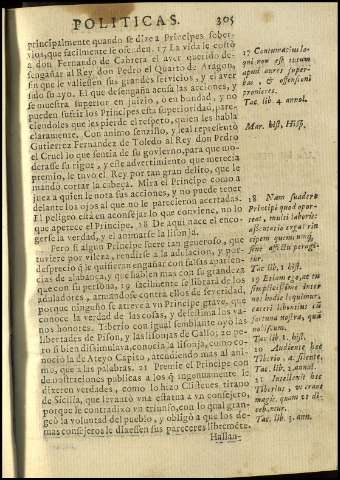 POLITICAS. 305
principalmente quando se dize a Principes sober-
vios, que facilmente se ofenden. 17 La vida le costò
a don Fernando de Cabrera el aver querido de-
sengañar al Rey don Pedro el Quarto de Aragon,
sin que le valiessen sus grandes servicios, y el aver
sido su ayo. El que desengaña acusa las acciones, y
se muestra superior en juizio, o en bondad, y no
pueden sufrir los Principes esta superioridad, pare-
ciendoles que les pierde el respeto, quien les habla
claramente. Con animo senzillo, y leal representò
Gutierrez Fernandez de Toledo al Rey don Pedro
el Cruel lo que sentia de su governo, para que mo-
derasse su rigor, y este advertimento que merecia
premio, le tuvo el Rey por tan gran delito, que le
mandò cortar la cabeça. Mira el Principe como a
juez a quien le nota sus acciones, y no puede tener
delante los ojos al que no le parecieron acertadas.
El peligro està en aconsejar lo que conviene, no lo
que apetece el Principe. 18 De aqui nace el enco-
gerse la verdad, y el animarse la lisonja.
Pero si algun Principe fuere tan generoso, que
tuviere por vileza, rendirse a la adulacion, y por
desprecio, que le quisieran engañar con falsas aparen-
cias de alabança, y que hablen mas con su grandeza
que con su persona, 19 facilmente se librarà de los
aduladores, armandose contra ellos de severidad,
porque ninguno se atreve a vn Principe grave, que
conoce la verdad de las cosas, y desestima los va-
nos honores. Tiberio con igual semblante oyò las
libertades de Pison, y las lisonjas de Gallo; 20 pe-
ro si bien dissimulava, conocia la lisonja, como co-
nociò la de Ateyo Capito, atendiendo mas al ani-
mo, que a las palabras. 21 Premie el Principe con
demostraciones publicas a los que ingenuamente le
dixeren verdades, como lo hizo Clistenes tirano
de Sicilia, que levantò vna estatua a vn consejero,
porque le contradixo vn triunfo, con lo qual gran-
geò la voluntad del pueblo, y obligò a que los de-
mas consejeros le dixessen sus pareceres libremẽte.
Hallan-
17 Contumacius lo-
qui non est tutum
apud aures super-
bas, & offensioni
proniores.
Tac. lib. 4. annal.
Mar. hist. Hisp.
18 Nam suadere
Principi quod opor-
teat, multi laboris:
assentatio erga Prin
cipem quemcunq;
sine affectu peragi-
tur.
Tac. lib. 1. hist.
19 Etiam ego, ac tu
simplicissimè inter
nos hodie loquimur,
cæteri libentius cũ
fortuna nostra, quã
nobiscum.
Tac. lib. 1. hist.
20 Audiente hæc
Tiberio, ac silente.
Tac. lib. 2. annal.
21 Intellexit hæc
Tiberius, vt erant
magis, quam vt di-
cebantur.
Tac. lib. 3. ann.